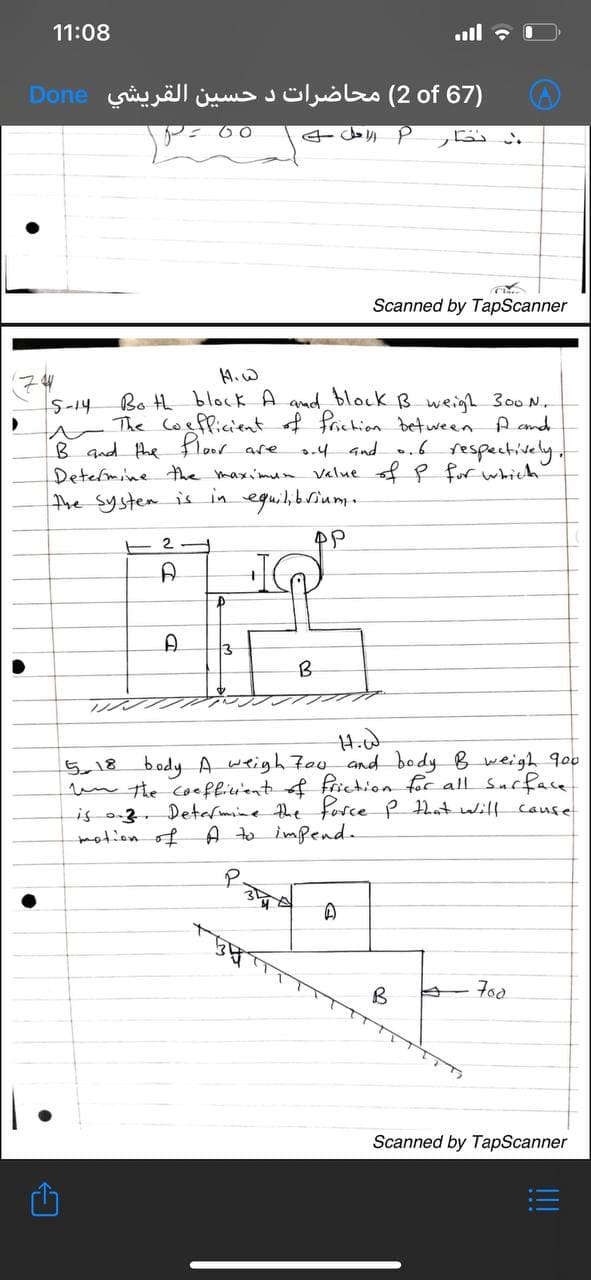 11:08
Done محاضرات د حسين القريشي (2 of 67)
P
Scanned by TapScanner
H.W
5-14 Both block A and block B weigh 300 N.
The coefficient of friction between A and
B and the floor are 0.4 and 0.6 respectively.
Determine the maximum value of P for which
the system is in equilibrium.
2
P
A
1
A
3
B
H.W
5-18 body A weigh 700 and body B weigh 900
The coefficient of friction for all surface
is 0.3. Determine the force P that will cause
motion of A to impend.
P
3
4
A
3
4
B
700
Scanned by TapScanner